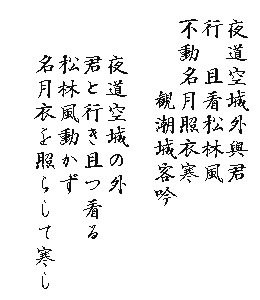 夜道空城外與君
行 且看松林風
不動名月照衣寒
観潮城客吟
夜道空城の外
君と行き且つ看る
松林風動かず
名月衣を照らして寒し